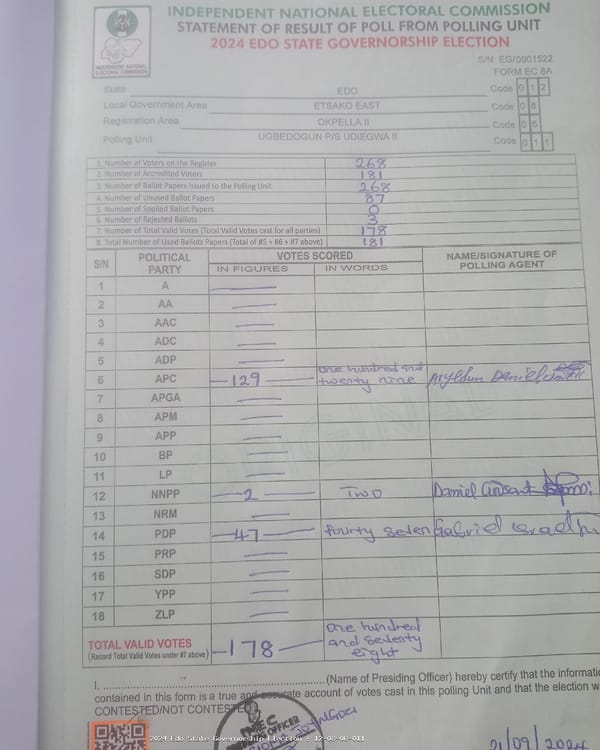 INDEPENDENT NATIONAL ELECTORAL COMMISSION
STATEMENT OF RESULT OF POLL FROM POLLING UNIT
2024 EDO STATE GOVERNORSHIP ELECTION
INEC
INDEPENDENT NATIONAL
ELECTORAL COMMISSION
S/N EG/0001522
FORM EC 8A
State EDO Code 0 1 2
Local Government Area ETSAKO EAST Code 0 8
Registration Area OKPELLA II Code 0 6
Polling Unit UGBEDOGUN P/S UDIEGWA II Code 0 1 1
1. Number of Voters on the Register 268
2. Number of Accredited Voters 181
3. Number of Ballot Papers Issued to the Polling Unit 268
4. Number of Unused Ballot Papers 87
5. Number of Spoiled Ballot Papers 0
6. Number of Rejected Ballots 3
7. Number of Total Valid Votes (Total Valid Votes cast for all parties) 178
8. Total Number of Used Ballots Papers (Total of #5 + #6 + #7 above) 181
S/N POLITICAL PARTY VOTES SCORED NAME/SIGNATURE OF POLLING AGENT
IN FIGURES IN WORDS
1 A —
2 AA —
3 AAC —
4 ADC —
5 ADP —
6 APC —129— one hundred and twenty nine Daniel
7 APGA —
8 APM —
9 APP —
10 BP —
11 LP —
12 NNPP —2— TWO Daniel
13 NRM —
14 PDP —47— fourty seven Gabriel
15 PRP —
16 SDP —
17 YPP —
18 ZLP —
TOTAL VALID VOTES —178— one hundred and seventy eight
(Record Total Valid Votes under #7 above)
I, ............................................(Name of Presiding Officer) hereby certify that the informatio
contained in this form is a true and accurate account of votes cast in this polling Unit and that the election w
CONTESTED/NOT CONTESTED
INEC
OFFICER
21/09/2024
2024 Edo State Governorship Election - 12-08-06-011